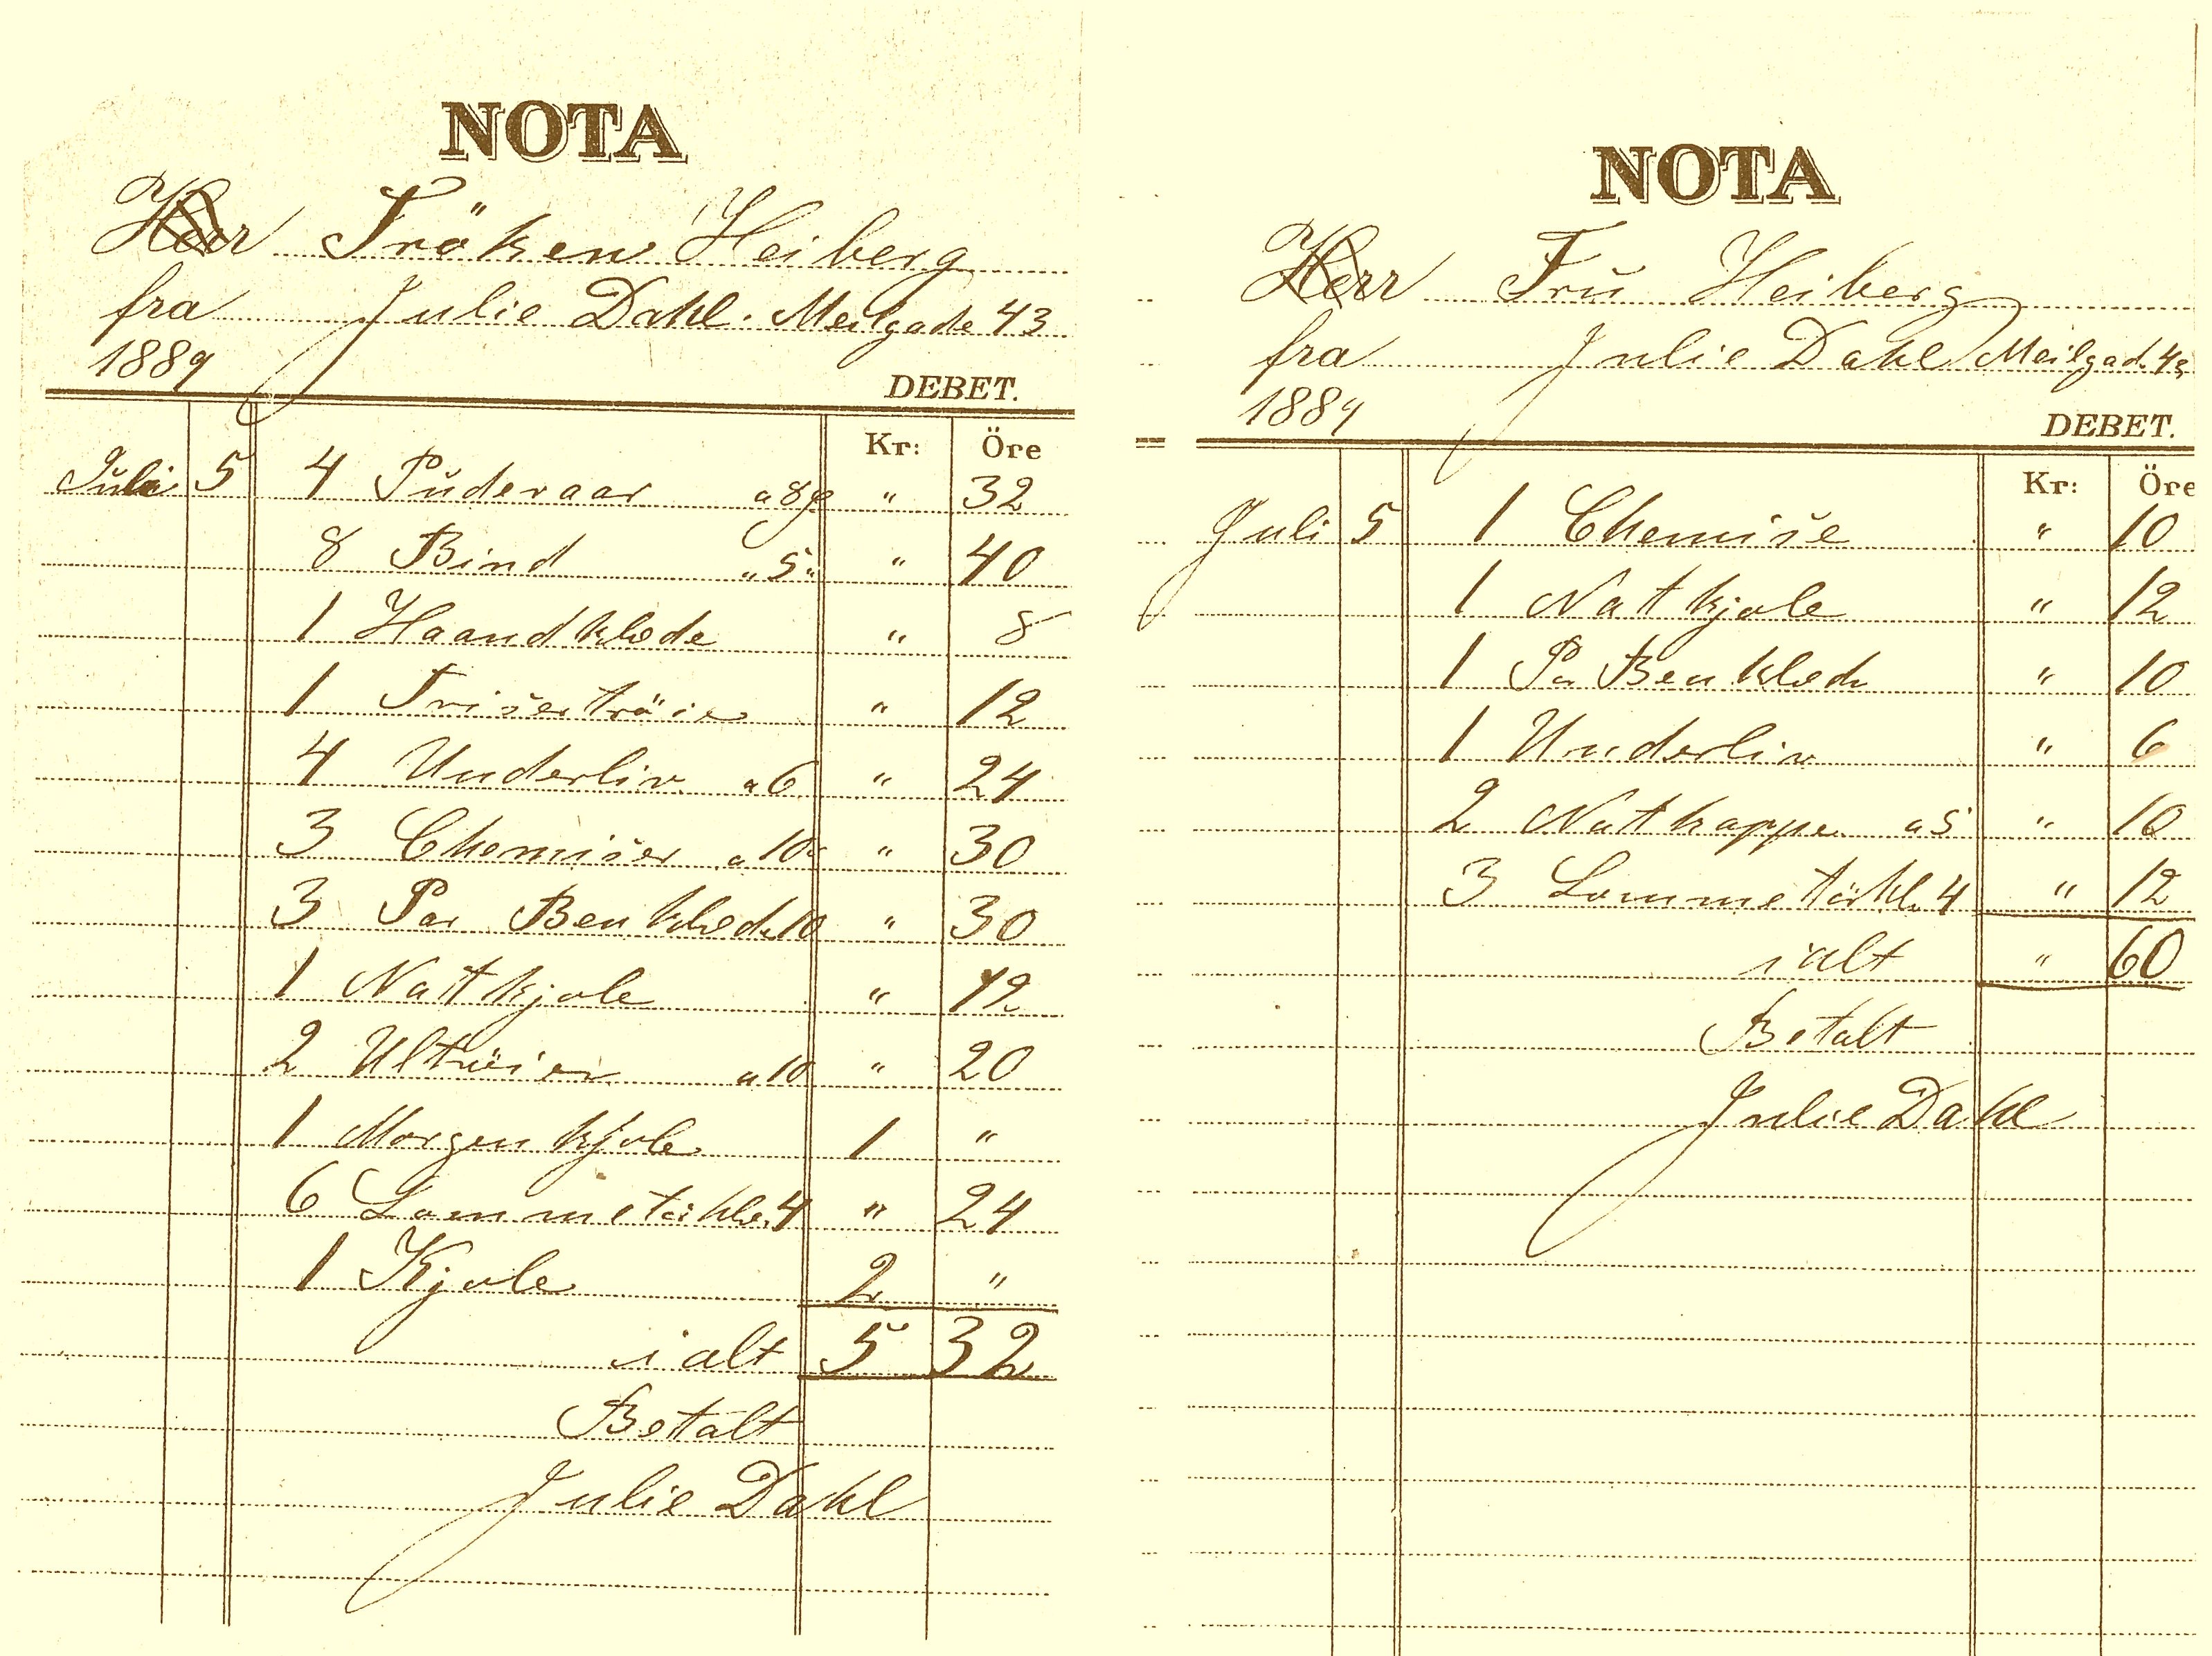 NOTA
Herr Fröken Heiberg
fra Julie Dahl. Meilgade 43
1889
DEBET.
Kr: Öre
Juli 5 4 Pudevaar a 8 ø " 32
8 Bind " 5 " " 40
1 Haandklæde " 8
1 Frisertröie " 12
4 Underliv a 6 " 24
3 Chemiser a 10 " 30
3 Par Benklæde 10 " 30
1 Natkjole " 12
2 Ultröier a 10 " 20
1 Morgenkjole 1 "
6 Lommetörkl. 4 " 24
1 Kjole 2 "
i alt 5 32
Betalt
Julie Dahl
NOTA
Herr Fru Heiberg
fra Julie Dahl Meilgad. 43
1889
DEBET.
Kr: Öre
Juli 5 1 Chemise " 10
1 Natkjole " 12
1 Pa Benklæde " 10
1 Underliv " 6
2 Natkappe a 5 " 10
3 Lommetörkl. 4 " 12
i alt " 60
Betalt
Julie Dahl